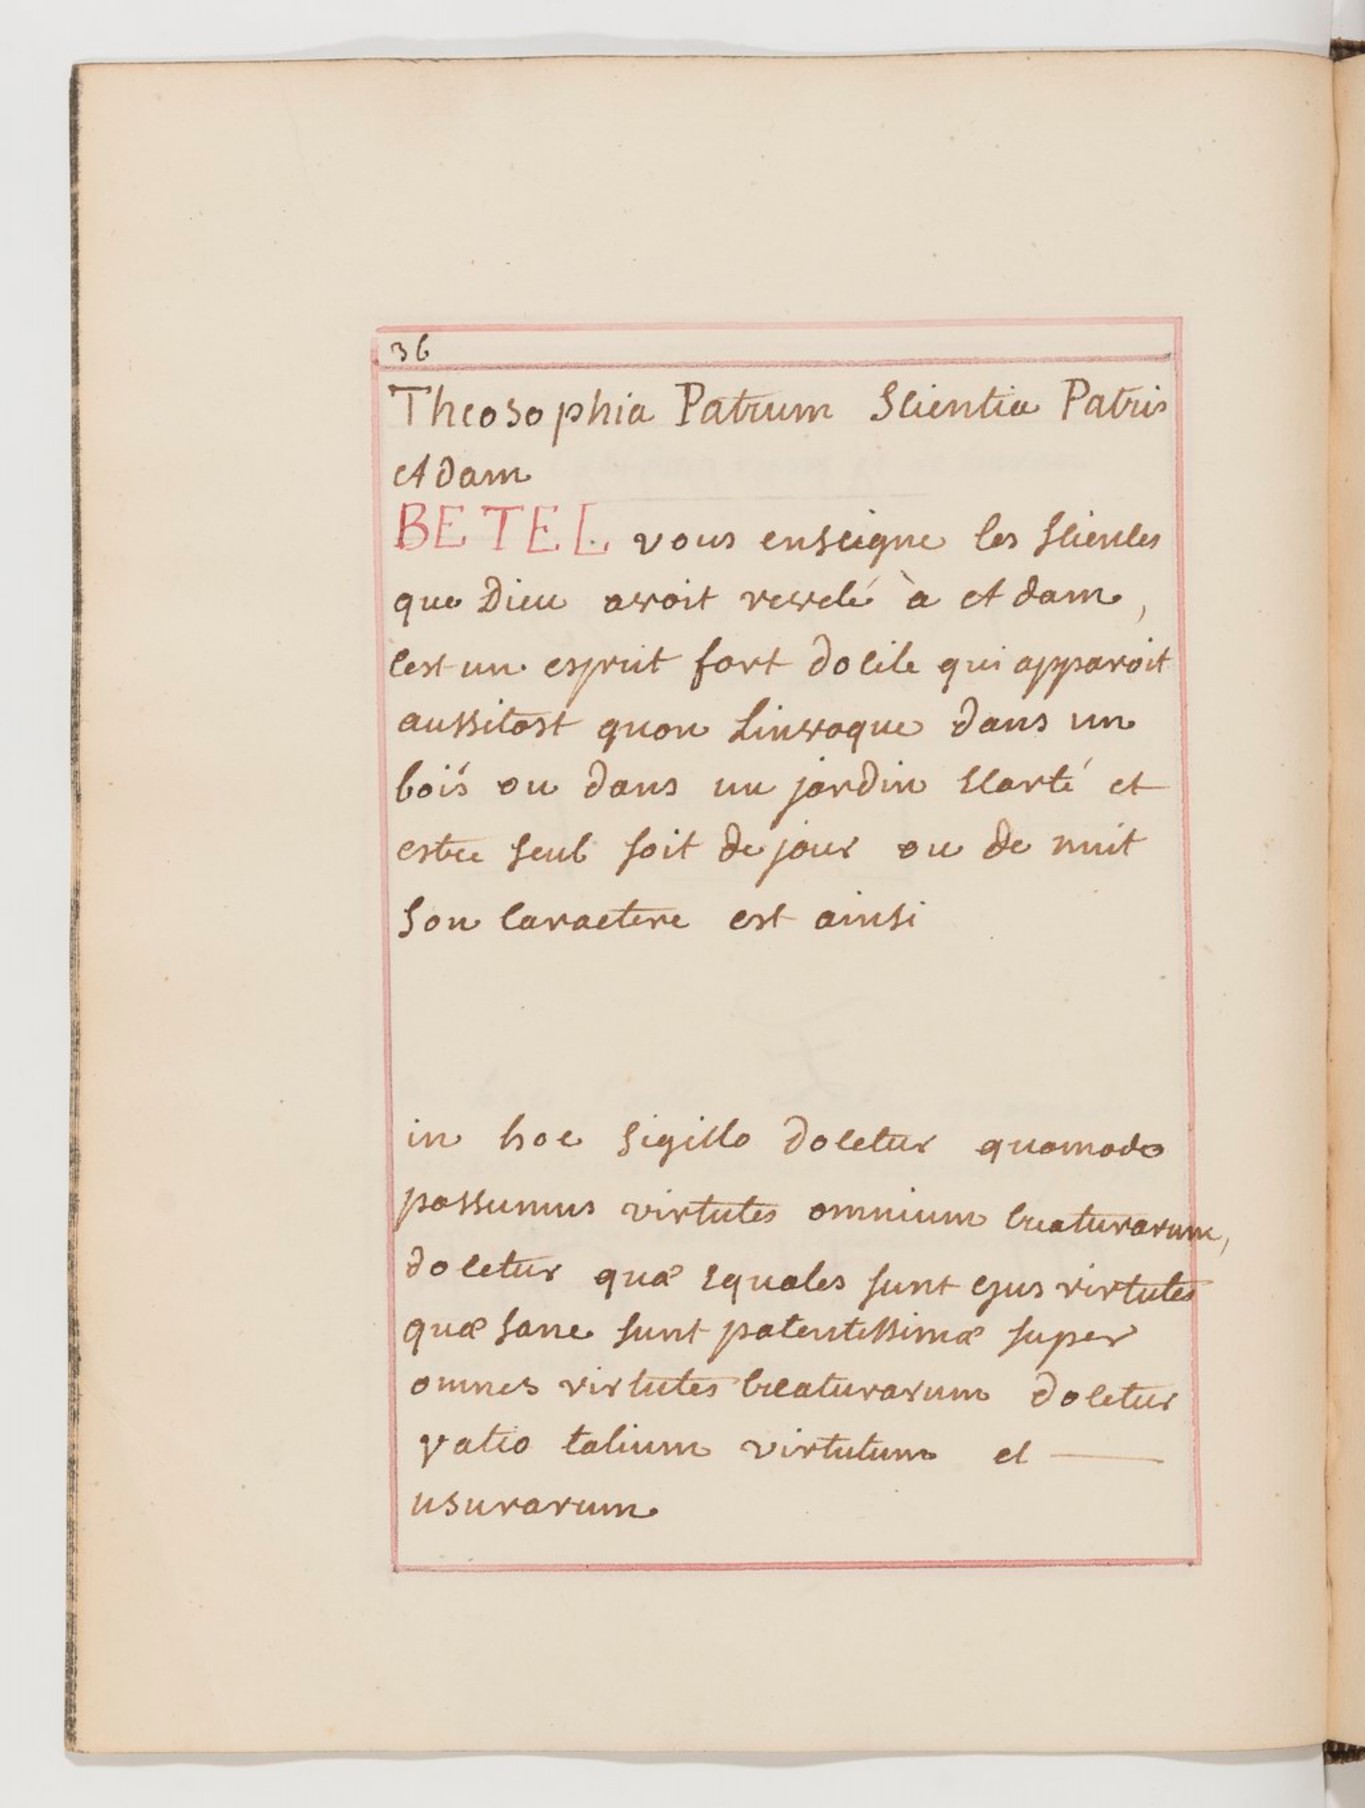 36
Theosophia Patrum Scientia Patris
Adam
BETEL vous enseigne les sciences
que Dieu avoit revelé à Adam,
cest un esprit fort docile qui apparoit
aussitost quon linvoque dans un
bois ou dans un jardin ecarté et
estre seul soit de jour ou de nuit
son caractere est ainsi
in hoc sigillo docetur quomodo
possumus virtutes omnium creaturarum,
docetur quæ equales sunt ejus virtutes
quæ sane sunt potentissimæ super
omnes virtutes creaturarum docetur
ratio talium virtutum et —
usurarum